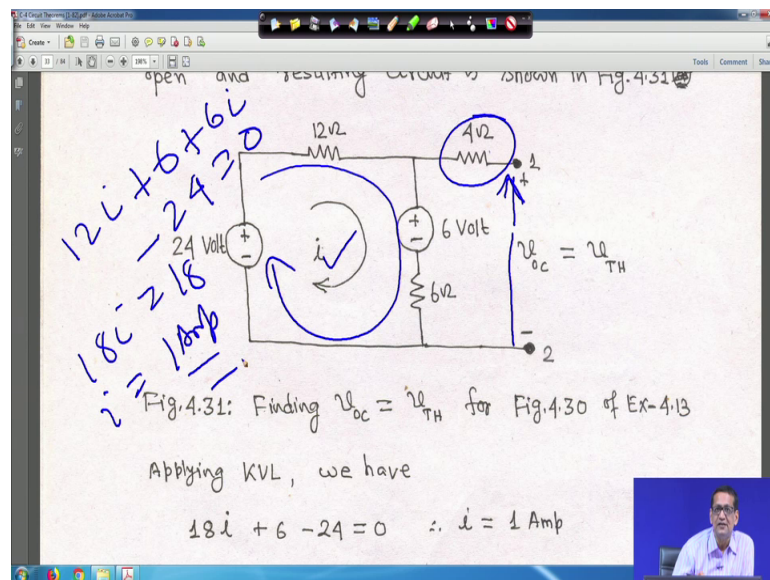 C-4 Circuit Theorems [1-62].pdf - Adobe Acrobat Pro
File Edit View Window Help
Create
Tools Comment
open and resulting circuit is shown in Fig.4.31
12i + 6 + 6i
- 24 = 0
18i = 18
i = 1 Amp
12Ω
4Ω
1
+
24 Volt
+
-
i
+
-
6 Volt
6Ω
V_OC = V_TH
-
2
Fig.4.31: Finding V_OC = V_TH for Fig.4.30 of Ex-4.13
Applying KVL, we have
18i + 6 - 24 = 0 ∴ i = 1 Amp